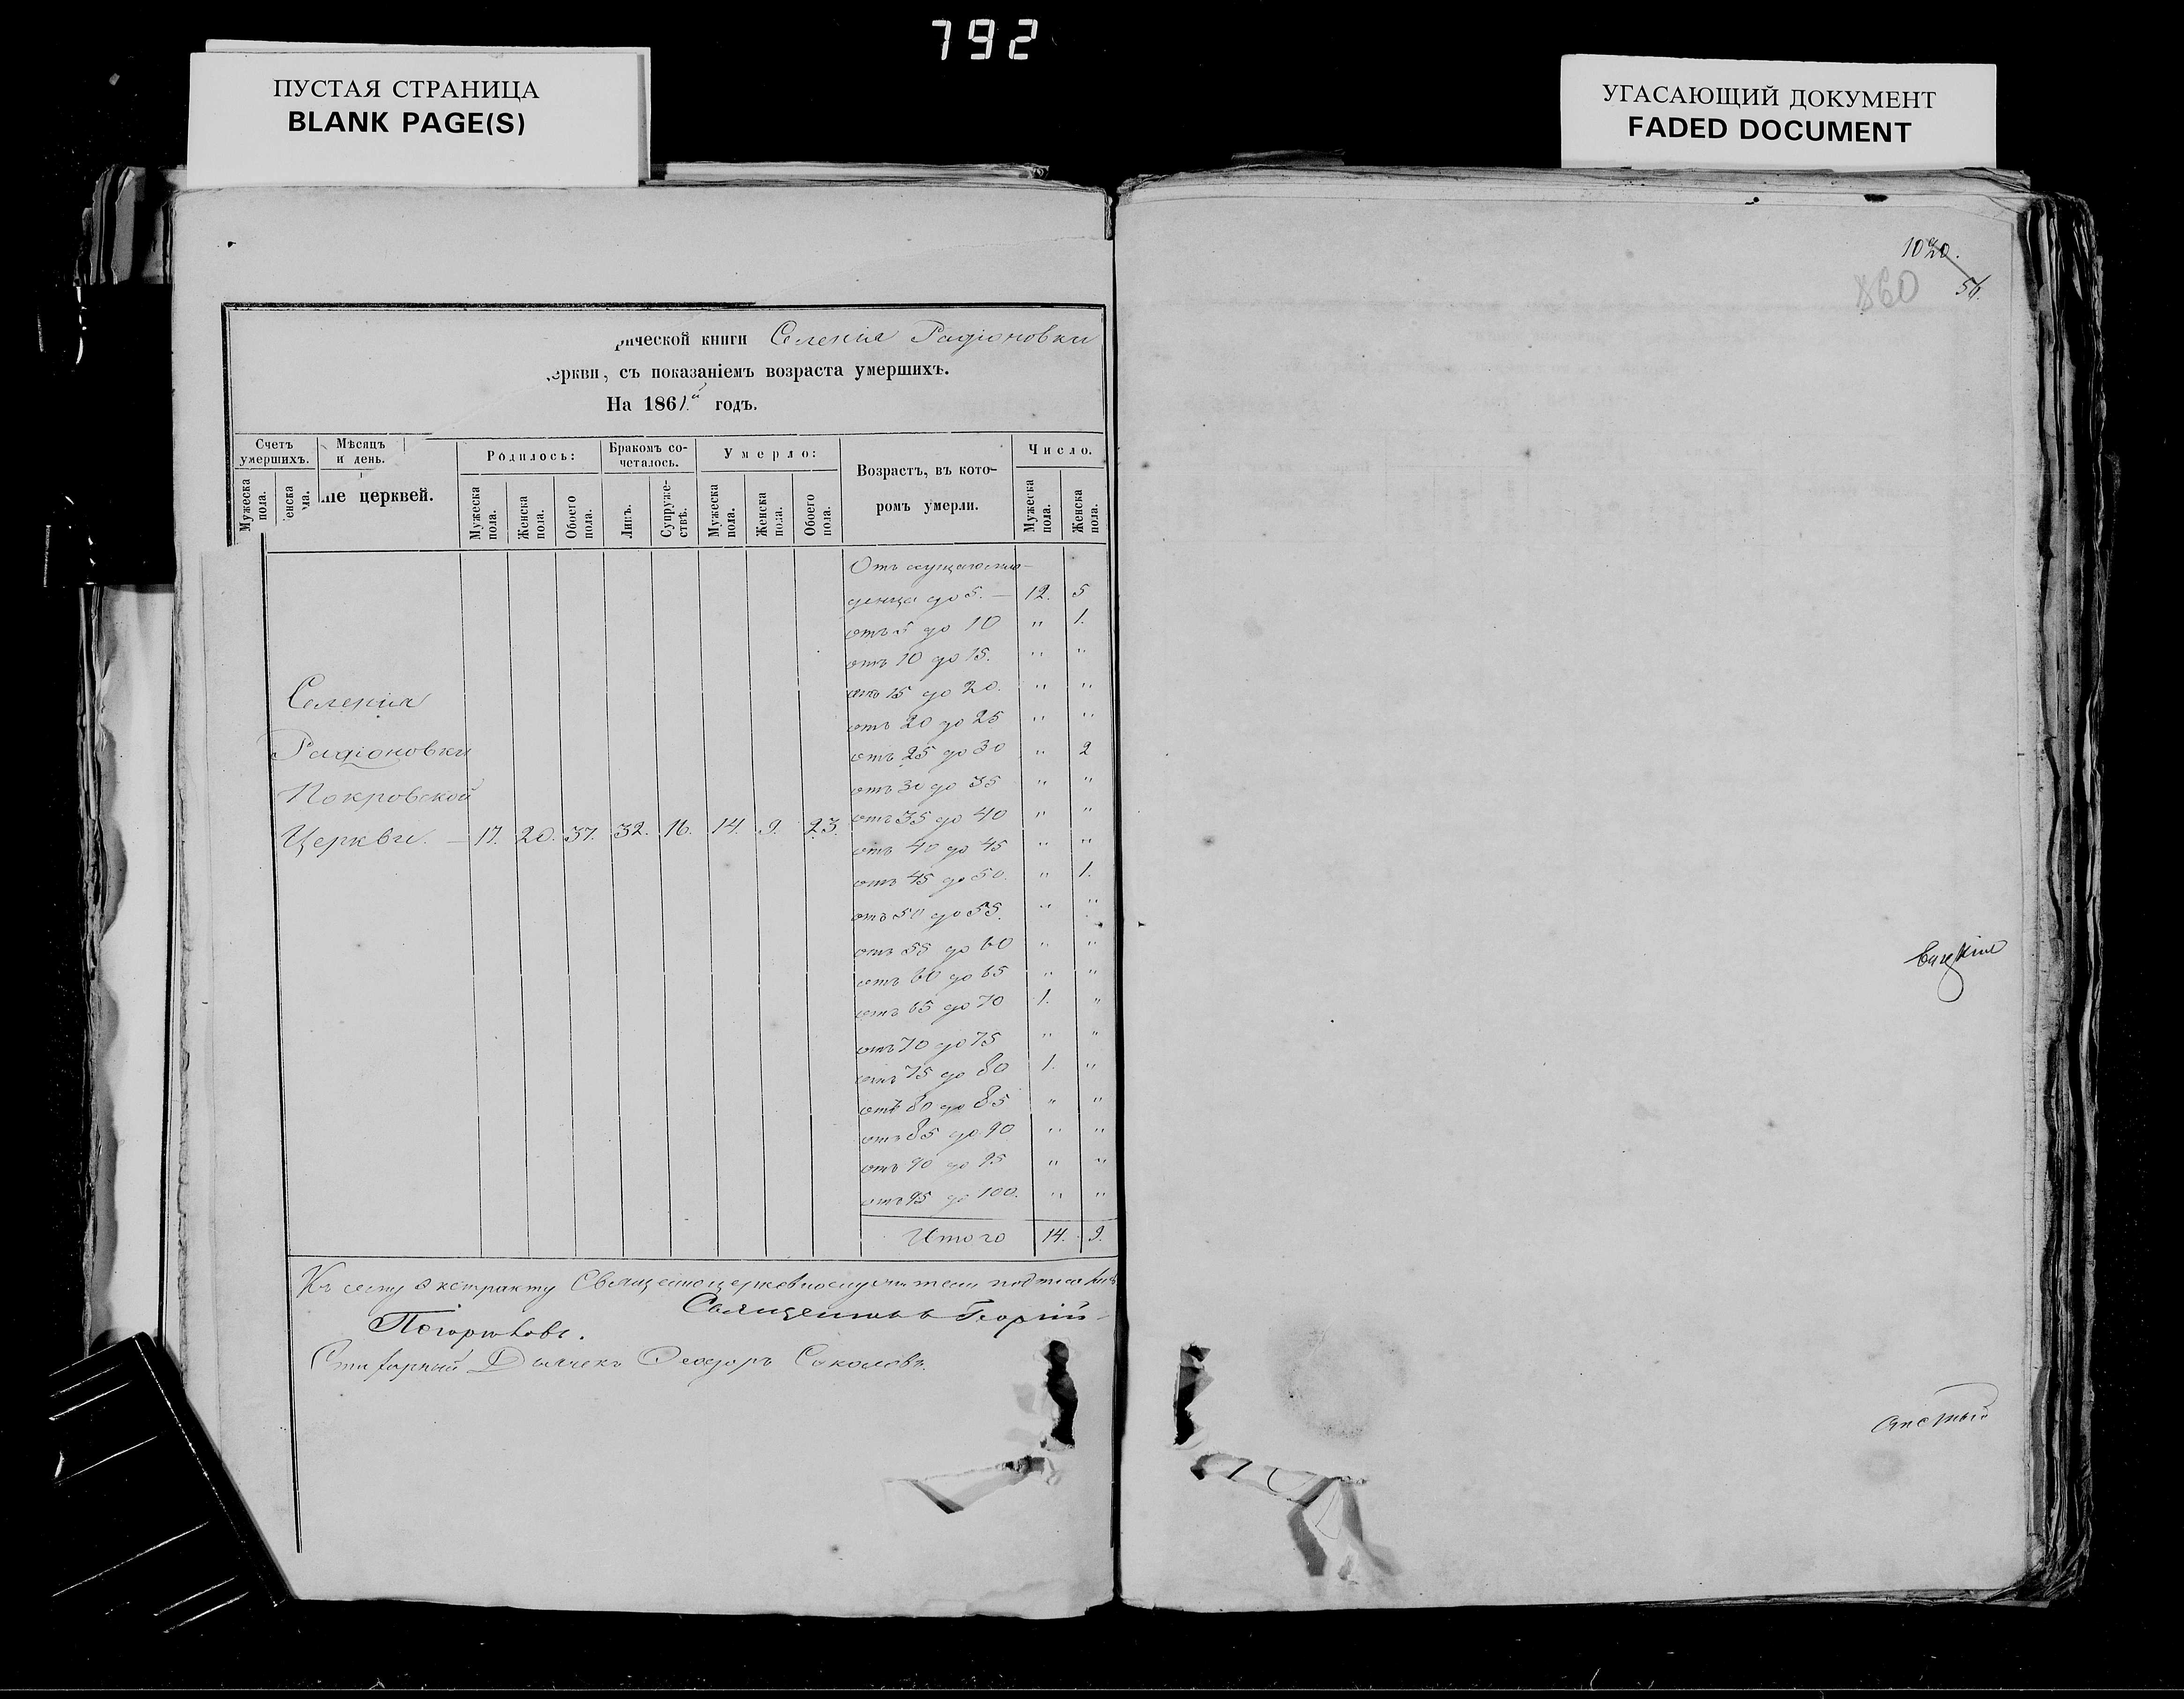 792
ПУСТАЯ СТРАНИЦА
BLANK PAGE(S)
УГАСАЮЩИЙ ДОКУМЕНТ
FADED DOCUMENT
рической книги Селенія Радіоновки
еркви, съ показаніемъ возраста умершихъ.
На 1861.й годъ.
Счетъ умершихъ. Мѣсяцъ и день. Родилось: Бракомъ сочеталось. Умерло: Возрастъ, въ которомъ умерли. Число.
Мужеска пола. енска ола. ніе церквей. Мужеска пола. Женска пола. Обоего пола. Лицъ. Супружествъ. Мужеска пола. Женска пола. Обоего пола. Мужеска пола. Женска пола.
Отъ
денца до 5. — 12. 5
отъ 5 до 10 " 1.
отъ 10 до 15. " "
отъ 15 до 20. " "
отъ 20 до 25 " "
отъ 25 до 30 " 2
отъ 30 до 35 " "
отъ 35 до 40 " "
отъ 40 до 45 " "
отъ 45 до 50. " 1.
отъ 50 до 55. " "
отъ 55 до 60 " "
отъ 60 до 65 " "
отъ 65 до 70 1. "
отъ 70 до 75 " "
отъ 75 до 80 1. "
отъ 80 до 85 " "
отъ 85 до 90 " "
отъ 90 до 95 " "
отъ 95 до 100. " "
Итого 14. 9.
Селенія
Радіоновки
Покровской
Церкви. — 17. 20. 37. 32. 16. 14. 9. 23.
Къ сему экстракту Священноцерковнослужители
Священникъ Георгій
Дьячекъ Ѳеодоръ Соколовъ.
1020.
860
56.